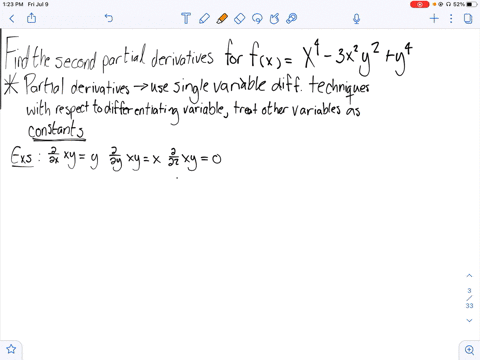 1:23 PM Fri Jul 9
52%
Find the second partial derivatives for f(x) = x⁴ - 3x²y² + y⁴
* Partial derivatives → use single variable diff. techniques
with respect to differentiating variable, treat other variables as
constants
Exs: ∂/∂x xy = y ∂/∂y xy = x ∂/∂z xy = 0
3
/
33